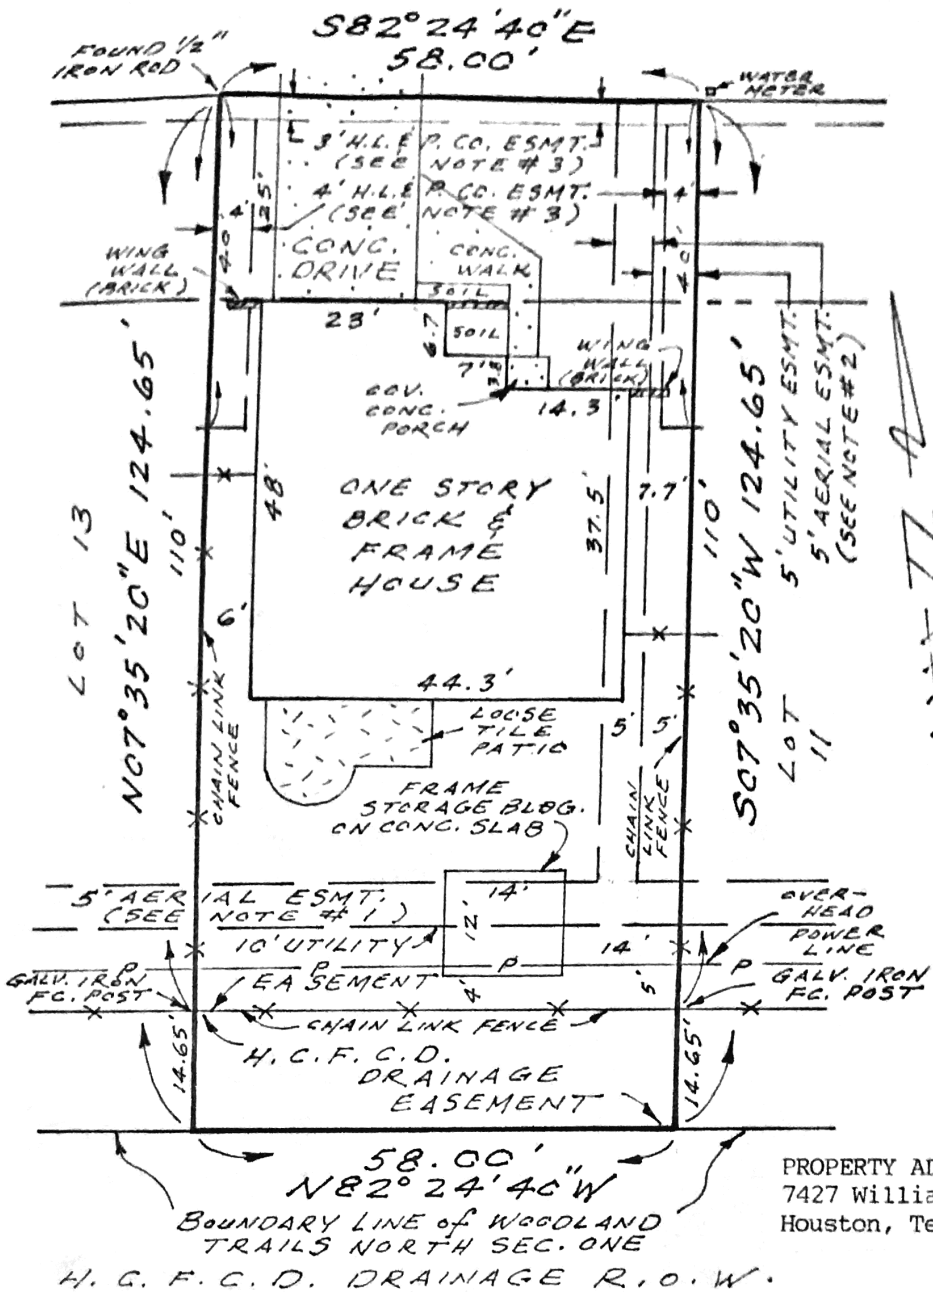 S82°24'40"E
58.00'
FOUND 1/2"
IRON ROD
WATER
METER
3' H.L.& P. CO. ESMT.
(SEE NOTE #3)
4' H.L.& P. CO. ESMT.
(SEE NOTE #3)
4'
25'
40'
4'
40'
WING
WALL
(BRICK)
CONC.
DRIVE
CONC.
WALK
SOIL
SOIL
23'
6.7
7'
3.8
WING
WALL
(BRICK)
14.3'
COV.
CONC.
PORCH
5' UTILITY ESMT.
5' AERIAL ESMT.
(SEE NOTE #2)
LOT 13
N07°35'20"E 124.65'
110'
48'
ONE STORY
BRICK &
FRAME
HOUSE
37.5'
7.7'
110'
S07°35'20"W 124.65'
LOT
11
6'
CHAIN LINK
FENCE
44.3'
LOOSE
TILE
PATIO
5'
5'
CHAIN
LINK
FENCE
FRAME
STORAGE BLDG.
ON CONC. SLAB
5' AERIAL ESMT.
(SEE NOTE #1)
14'
12'
10' UTILITY
EASEMENT
14'
OVER-
HEAD
POWER
LINE
P
P
P
P
GALV. IRON
FC. POST
4'
5'
GALV. IRON
FC. POST
CHAIN LINK FENCE
14.65'
H.C.F.C.D.
DRAINAGE
EASEMENT
14.65'
58.00'
N82°24'40"W
BOUNDARY LINE of WOODLAND
TRAILS NORTH SEC. ONE
H.C.F.C.D. DRAINAGE R.O.W.
PROPERTY AD
7427 Willia
Houston, Te